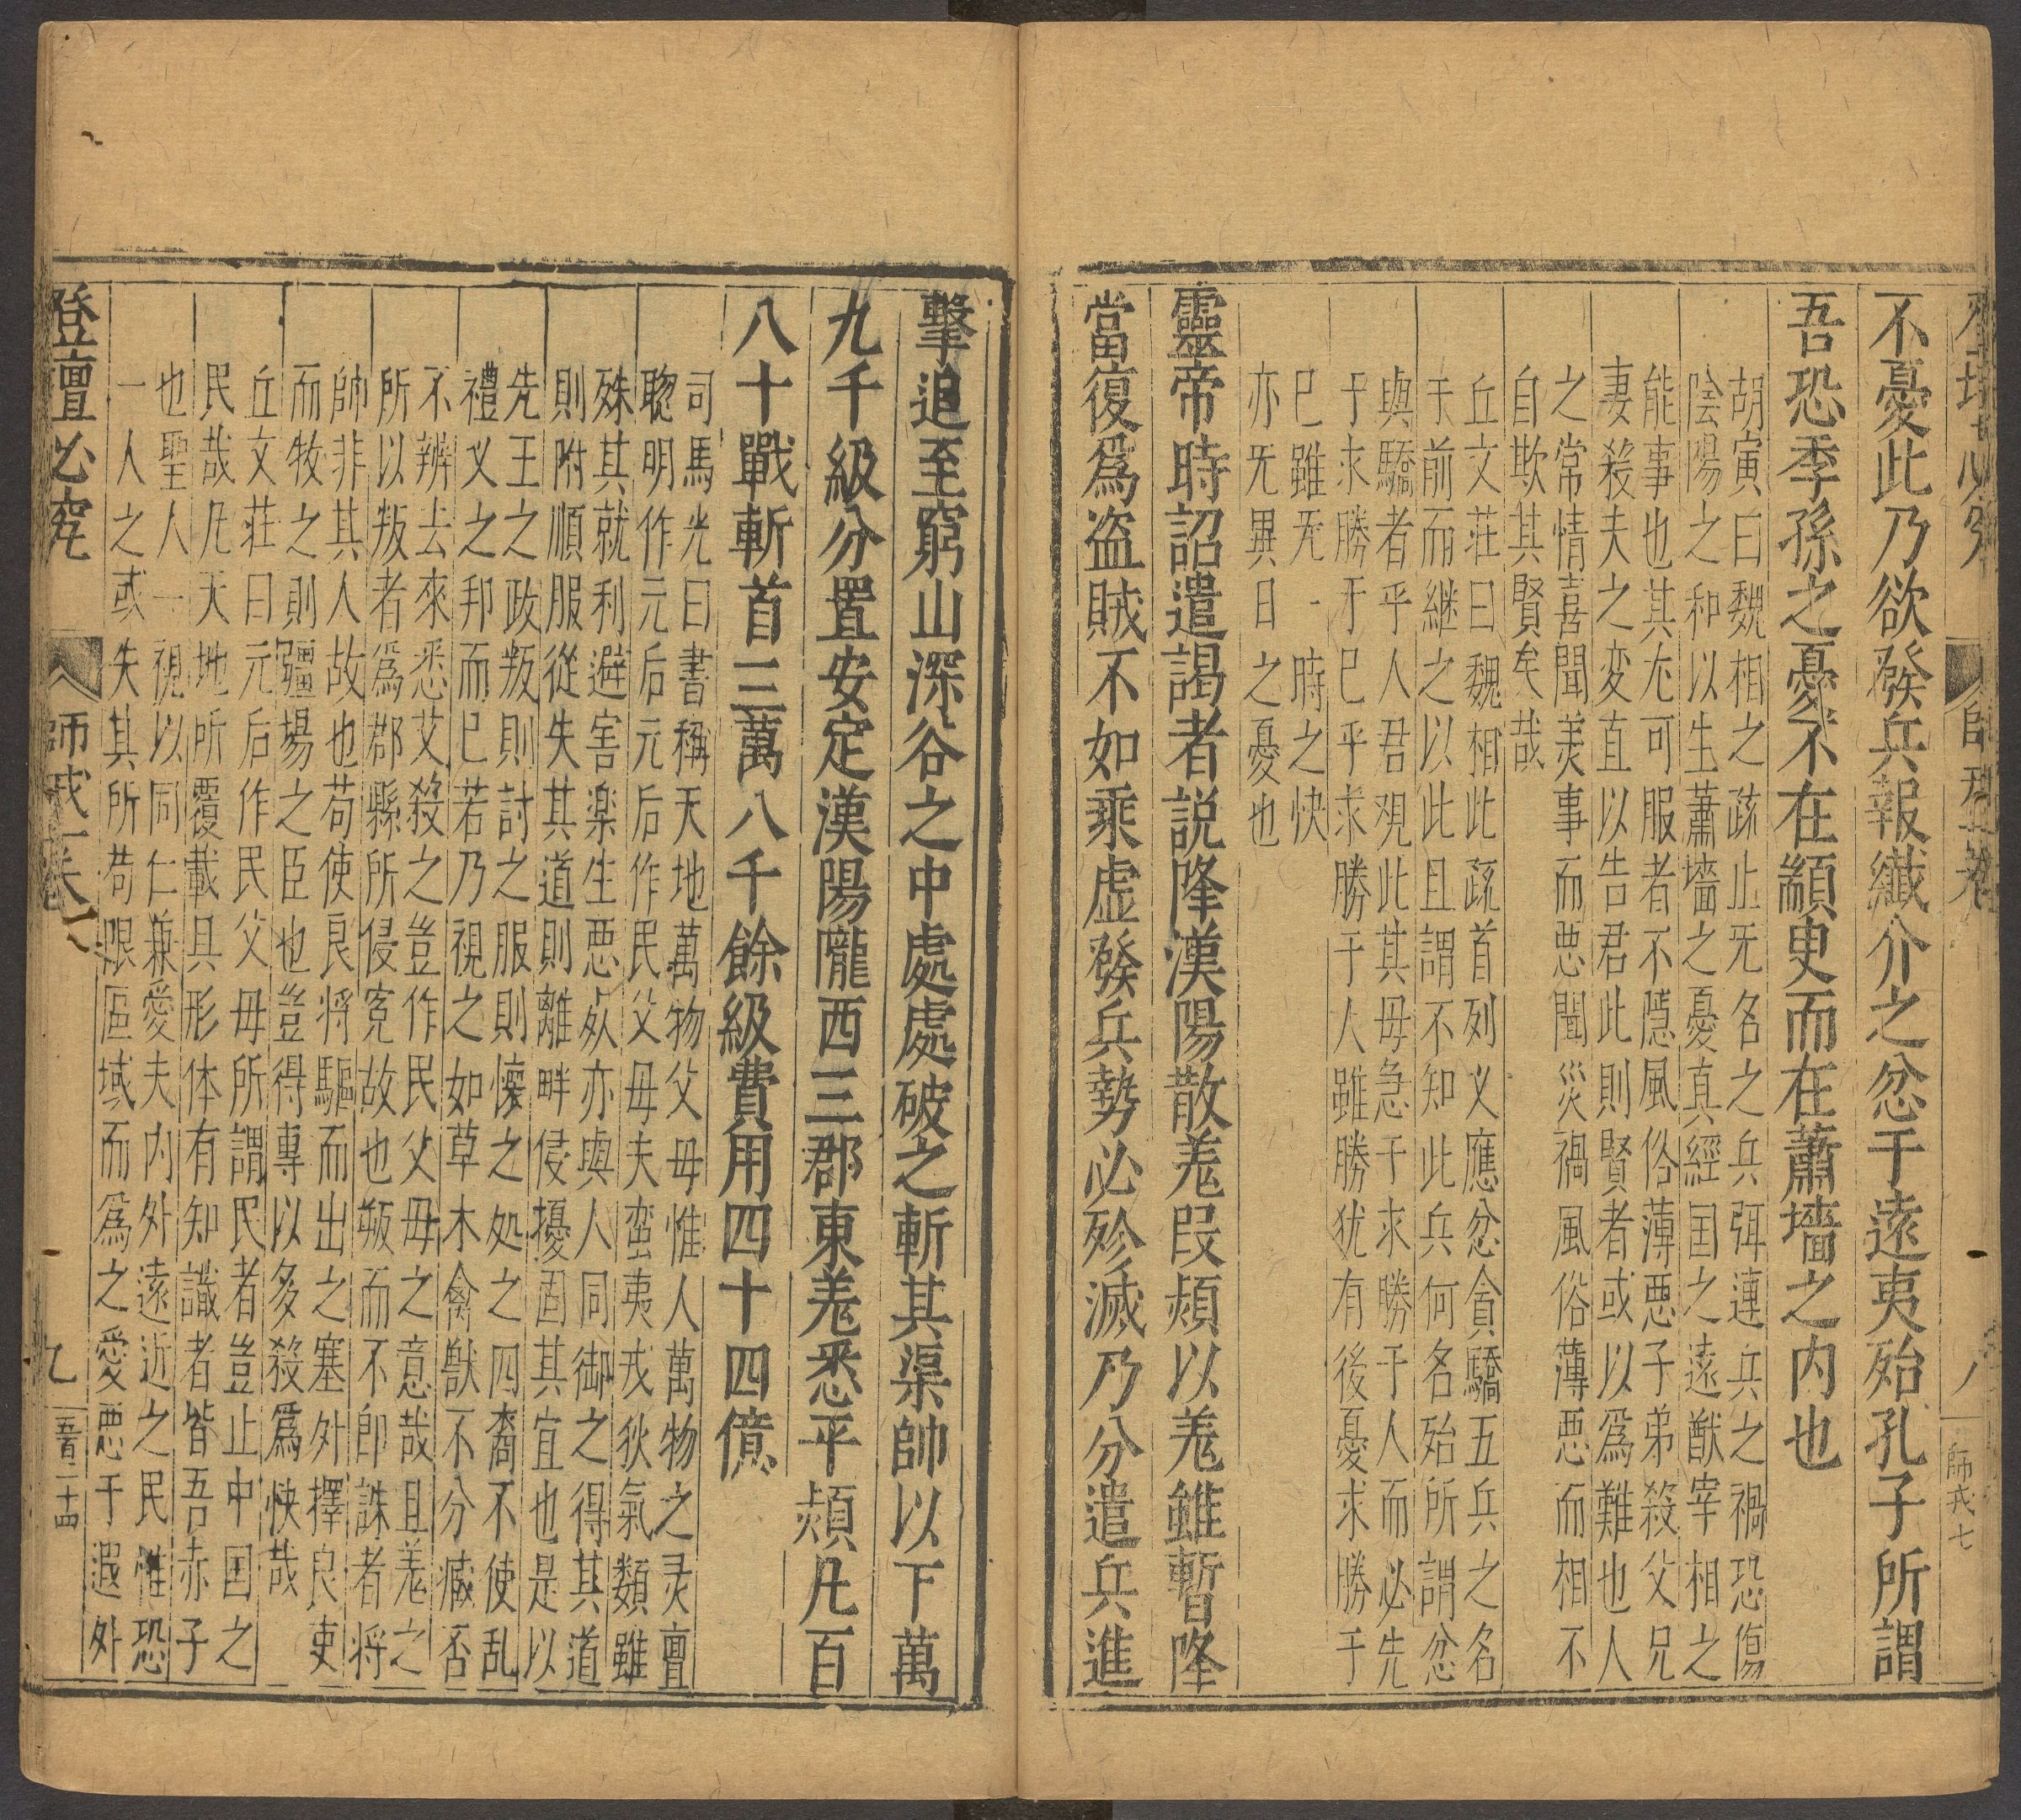 不憂此乃欲發兵報纖介之忿于遠夷殆孔子所謂
吾恐季孫之憂不在顓臾而在蕭墻之内也
胡寅曰魏相之疏止旡名之兵弭連兵之禍恐傷
陰陽之和以生蕭墻之憂真經囯之遠猷宰相之
能事也其尢可服者不隱風俗薄悪子弟殺父兄
妻殺夫之変直以告君此則賢者或以爲難也人
之常情喜聞美事而悪聞災禍風俗薄悪而相不
自欺其賢矣哉
丘文莊曰魏相此疏首列义應忿貪驕五兵之名
于前而継之以此且謂不知此兵何名殆所謂忿
與驕者乎人君观此其毋急于求勝于人而必先
于求勝于已乎求勝于人雖勝犹有後憂求勝于
已雖旡一時之快
亦旡異日之憂也
靈帝時詔遣謁者説降漢陽散羗叚熲以羗雖暫降
當復爲盗賊不如乘虚發兵勢必殄滅乃分遣兵進
擊追至窮山深谷之中處處破之斬其渠帥以下萬
九千級分置安定漢陽隴西三郡東羗悉平熲凡百
八十戰斬首三萬八千餘級費用四十四億
司馬光曰書稱天地萬物父毋惟人萬物之灵亶
聦明作元后元后作民父毋夫蛮夷戎狄氣類雖
殊其就利避害楽生悪死亦與人同御之得其道
則附順服從失其道則離畔侵擾固其宜也是以
先王之政叛則討之服則懐之処之四裔不使乱
禮义之邦而已若乃視之如草木禽獣不分臧否
不辨去來悉艾殺之豈作民父毋之意哉且羗之
所以叛者爲郡縣所侵寃故也叛而不即誅者将
帥非其人故也苟使良将驅而出之塞外擇良吏
而牧之則疆場之臣也豈得專以多殺爲快哉
丘文莊曰元后作民父毋所謂民者豈止中囯之
民哉凡天地所覆載具形体有知識者皆吾赤子
也聖人一視以同仁兼愛夫内外遠近之民惟恐
一人之或失其所苟限區域而爲之愛悪于遐外
登壇必究
師戎
九
吾二十四
師戎七